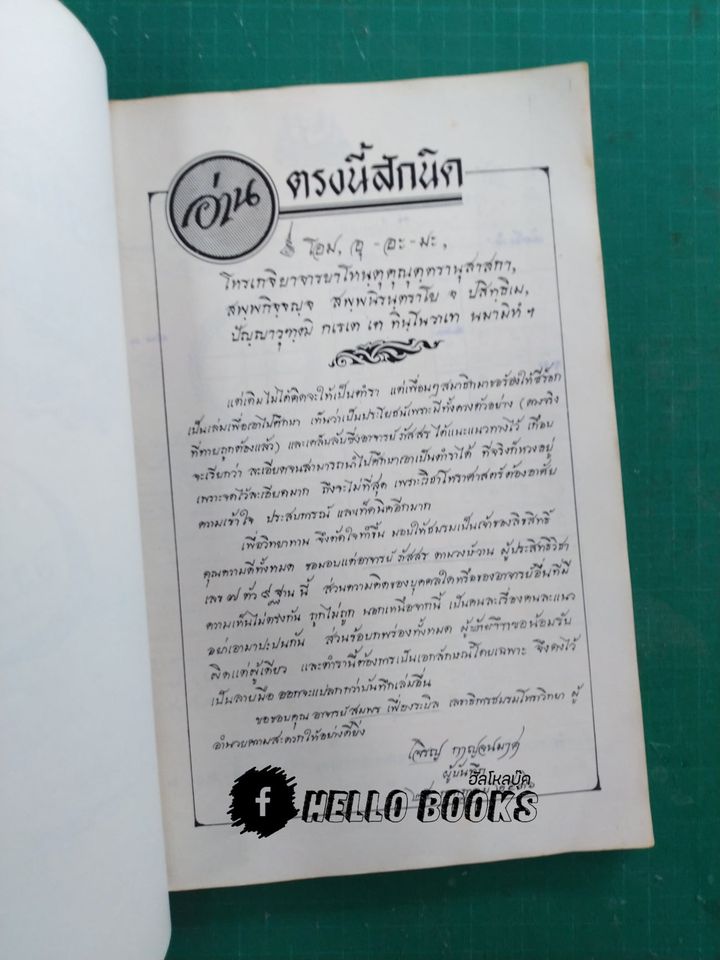 อ่าน ตรงนี้สักนิด
โอม, อุ - อะ - มะ,
โหรเกจิยาจารยาโหนฺตุคุณุตฺตรานุสาสกา,
สพฺพกิจฺจญฺจ สพฺพนิรนฺตราโย จ ปสิทฺธิเม,
ปัญฺญาวุฑฺฒิ กเรเต เต ทินฺโนวาเท นมามิหํฯ
แต่เดิมไม่ได้คิดจะให้เป็นตำรา แต่เพื่อนๆสมาชิกมาขอร้องให้ซีร็อก
เป็นเล่มเพื่อเอาไปศึกษา เห็นว่าเป็นประโยชน์เพราะมีทั้งดวงตัวอย่าง (ดวงจริง
ที่ทายถูกต้องแล้ว) และเคล็บลับซึ่งอาจารย์ภัสสรได้แนะแนวทางไว้ เกือบ
จะเรียกว่า ละเอียดจนสามารถนำไปศึกษาเอาเป็นตำราได้ ที่จริงก็ห่วงอยู่
เพราะจดไว้ละเอียดมาก ถึงจะไม่ที่สุด เพราะวิชาโหราศาสตร์ต้องอาศัย
ความเข้าใจ ประสบการณ์ และเท็คนิคอีกมาก
เพื่อวิทยาทาน จึงตัดใจทำขึ้น มอบให้ชมรมเป็นเจ้าของลิขสิทธิ์
คุณความดีทั้งหมด ขอมอบแด่อาจารย์ภัสสร ผู้ประสิทธิวิชา
เลข ๗ ตัว ๙ ฐาน นี้ ส่วนความคิดของบุคคลใดหรือของอาจารย์อื่นที่มี
ความเห็นไม่ตรงกัน ถูกไม่ถูก นอกเหนือจากนี้ เป็นคนละเรื่องคนละแนว
อย่าเอามาปะปนกัน ส่วนข้อบกพร่องทั้งหมด ผู้บันทึกขอน้อมรับ
ผิดแต่ผู้เดียว และตำรานี้ต้องการเป็นเอกลักษณ์โดยเฉพาะ จึงคงไว้
เป็นลายมือ ออกจะแปลกกว่าบันทึกเล่มอื่น
ขอขอบคุณ อาจารย์สมพร เพื่องระบิล เลขาธิการชมรมโหราวิทยา ผู้
อำนวยความสะดวกให้อย่างดียิ่ง
เจริญ กาญจนมาศ
ผู้บันทึก
ฮัลโหลบุ๊ค
f HELLO BOOKS